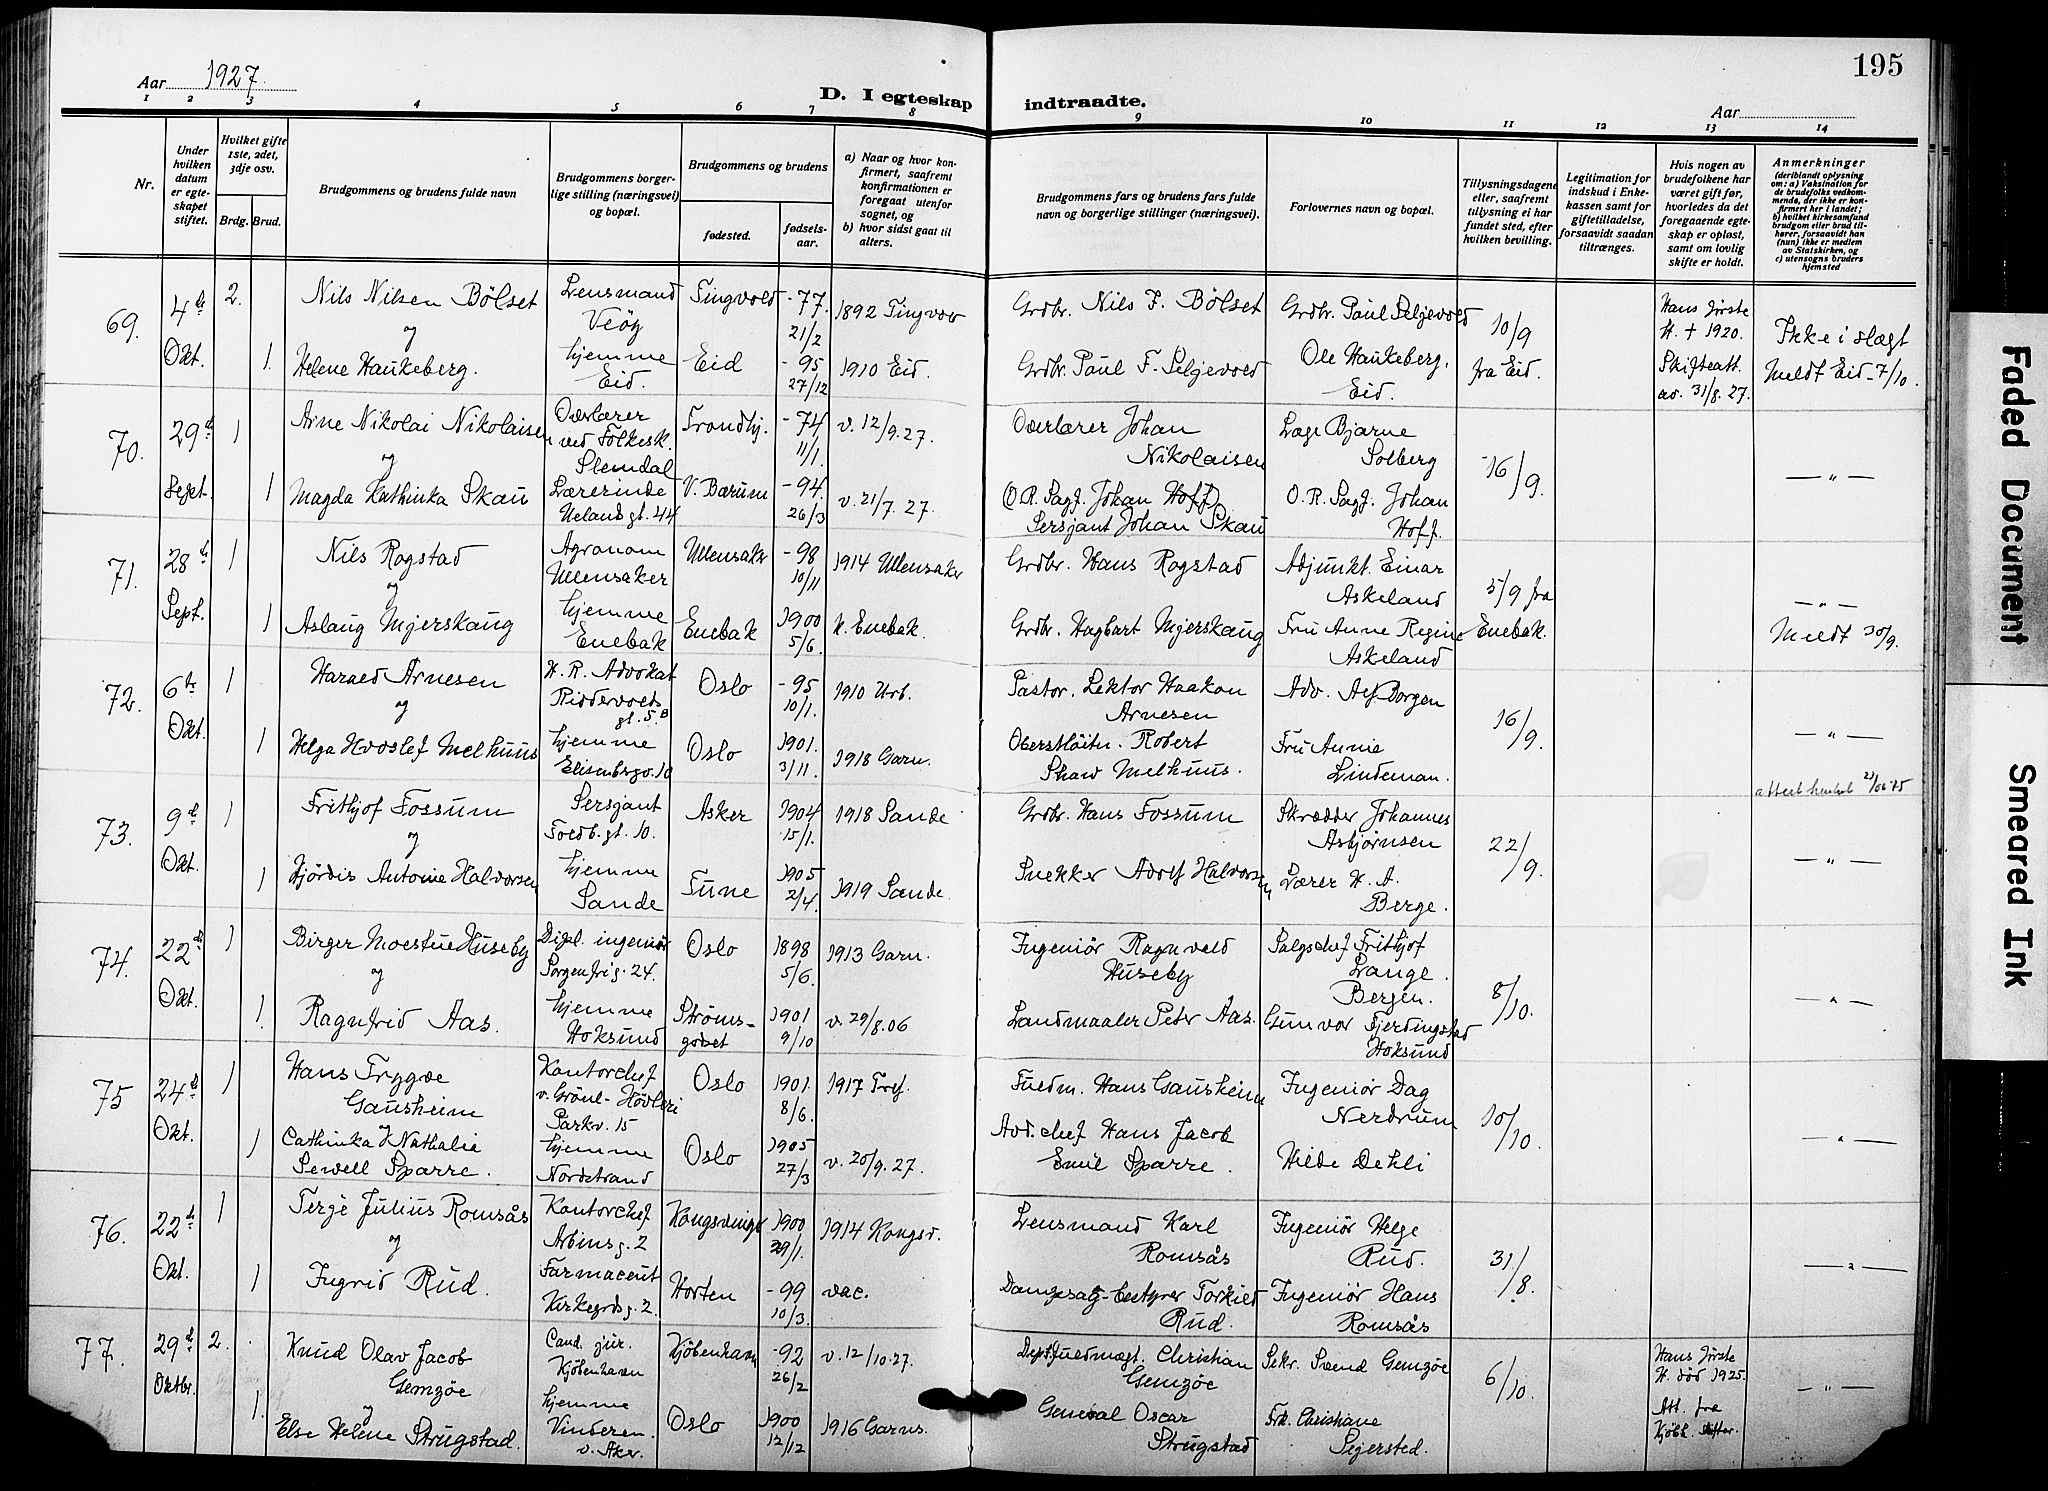 Aar 1927.
D. I egteskap indtraadte.
Aar
195
1 2 3 4 5 6 7 8 9 10 11 12 13 14
Nr.
Under hvilken datum er egteskapet stiftet.
Hvilket gifte 1ste, 2det, 3dje osv.
Brdg. Brud.
Brudgommens og brudens fulde navn
Brudgommens borgerlige stilling (næringsvei) og bopæl.
Brudgommens og brudens
fødested.
fødselsaar.
a) Naar og hvor konfirmert, saafremt konfirmationen er foregaat utenfor sognet, og
b) hvor sidst gaat til alters.
Brudgommens fars og brudens fars fulde navn og borgerlige stillinger (næringsvei).
Forlovernes navn og bopæl.
Tillysningsdagene eller, saafremt tillysning ei har fundet sted, efter hvilken bevilling.
Legitimation for indskud i Enkekassen samt for giftetilladelse, forsaavidt saadan tiltrænges.
Hvis nogen av brudefolkene har været gift før, hvorledes da det foregaaende egteskap er opløst, samt om lovlig skifte er holdt.
Anmerkninger
(deriblandt oplysning om: a) Vaksination for de brudefolks vedkommende, der ikke er konfirmert her i landet; b) hvilket kirkesamfund brudgom eller brud tilhører, forsaavidt han (hun) ikke er medlem av Statskirken, og c) utensogns bruders hjemsted
69. 4de Okt. 2. Nils Nilsen Bölset Lensmand Veöy Tingvold -77. 21/2 1892 Tingvold Grdbr. Nils F. Bölset Grdbr. Paul Seljevold 10/9 fra Eid. Hans förste H. + 1920. Skifteatt. av. 31/8.27. Ikke i slægt
og
1. Helene Haukeberg. hjemme Eid. Eid -95 27/12 1910 Eid. Grdbr. Paul F. Seljevold Ole Haukeberg. Eid. Meldt Eid - 7/10.
70. 29de Sept. 1 Arne Nikolai Nikolaisen Overlærer ved Folkesk. Slemdal Trondhj. -74 11/1. v. 12/9.27. Overlærer Johan Nikolaisen Læge Bjarne Solberg 16/9. — " —
og
1 Magda Kathinka Skau Lærerinde Uelands gt. 44 V. Bærum -94. 26/3 v. 21/7.27. (O.R. Sagf. Johan Hoff) Sersjant Johan Skau O.R. Sagf. Johan Hoff.
71. 28de Sept. 1 Nils Rogstad Agronom Ullensaker Ullensaker -98 10/11 1914 Ullensaker Grdbr. Hans Rogstad Adjunkt. Einar Askeland 5/9 fra Enebak. — " —
og
1 Aslaug Mjerskaug hjemme Enebak Enebak 1900 5/6. k. Enebak. Grdbr. Hagbart Mjerskaug Fru Anne Regine Askeland Meldt 30/9.
72. 6te Okt. 1 Harald Arnesen H.R. Advokat Riddervolds gt. 5.B Oslo -95 10/1. 1910 Urb. Pastor. Lektor Haakon Arnesen Adv. Alf Borgen 16/9. — " —
og
1 Helga Hvoslef Melhuus hjemme Elisenbergv. 10 Oslo 1901. 3/11. 1918 Garn. Oberstløitn. Robert Shaw Melhuus. Fru Annie Lindeman.
73. 9de Okt. 1 Frithjof Fossum Sersjant Toldb. gt. 10. Asker 1904 15/1. 1918 Sande Grdbr. Hans Fossum Skrædder Johannes Asbjørnsen 22/9. — " —
og
1 Hjördis Antonie Halvorsen hjemme Sande Tune 1905 2/4. 1919 Sande. Snekker Adolf Halvorsen Lærer H. A. Berge.
74. 22de Okt. 1 Birger Moestue Huseby Dipl. ingeniør Sorgenfrig. 24. Oslo 1898 5/6. 1913 Garn. Ingeniör Ragnvald Huseby Salgschef Frithjof Lange. Bergen. 8/10. — " —
og
1. Ragnfrid Aas. hjemme Hoksund Strömsgodset 1901 9/10 v. 29/8.06 Landmaaler Peter Aas. Gunvor Fjerdingstad Hoksund
75 24de Okt. 1 Hans Trygve Gausheim Kontorchef v. Grönl-Hövleri Parkv. 15 Oslo 1901. 8/6. 1917 Tref. Fuldm. Hans Gausheim Ingeniør Dag Nerdrum 10/10. — " —
og
1 Cathinka Nathalie Sewell Sparre. hjemme Nordstrand Oslo 1905 27/3 v. 20/9.27. Avd. chef Hans Jacob Emil Sparre. Hilde Dehli
76. 22de Okt. 1 Terje Julius Romsås Kontorchef Arbinsg. 2 Kongsvinger 1900 29/1. 1914 Kongsv. Lensmand Karl Romsås Ingeniør Helge Rud. 31/8. — " —
og
1 Ingrid Rud. Farmaceut Kirkegrdsg. 2. Horten -99 10/3. vac. Dampsag-bestyrer Torkild Rud. Ingeniør Hans Romsås
77. 29de Oktbr. 2. Knud Olav Jacob Gemzöe Cand. jur. Kjöbenhavn Kjöbenhavn -92 26/2 v. 12/10.27. Dept. fuldmægt. Christian Gemzöe Sekr. Svend Gemzöe 6/10. Hans förste H. död 1925. Att. fra Kjöbh. — " —
og
1. Else Helene Strugstad. hjemme Vinderen. v. Aker. Oslo 1900 12/12 1916 Garns. General Oscar Strugstad Frk. Christiane Sejersted.
Faded Document
Smeared Ink